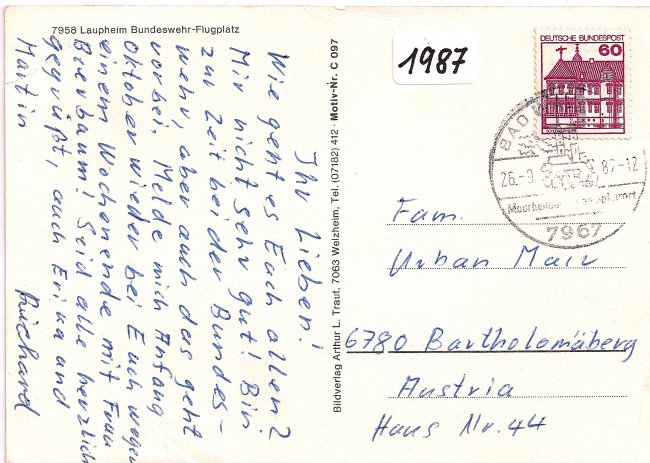 7958 Laupheim Bundeswehr-Flugplatz
Ihr Lieben!
Wie geht es Euch allen?
Mir nicht sehr gut! Bin
zur Zeit bei der Bundes-
wehr, aber auch das geht
vorbei. Melde mich Anfang
Oktober wieder bei Euch wegen
einem Wochenende mit Frau
Bierbaum! Seid alle herzlich
gegrüßt, auch Erika und
Martin Richard
Bildverlag Arthur L. Traut, 7063 Welzheim, Tel. (07182) 412 · Motiv-Nr. C 097
1987
DEUTSCHE BUNDESPOST
60
BAD
26.-9. 87-12
7967
Fam.
Urban Mair
6780 Bartholomäberg
Austria
Haus Nr. 44